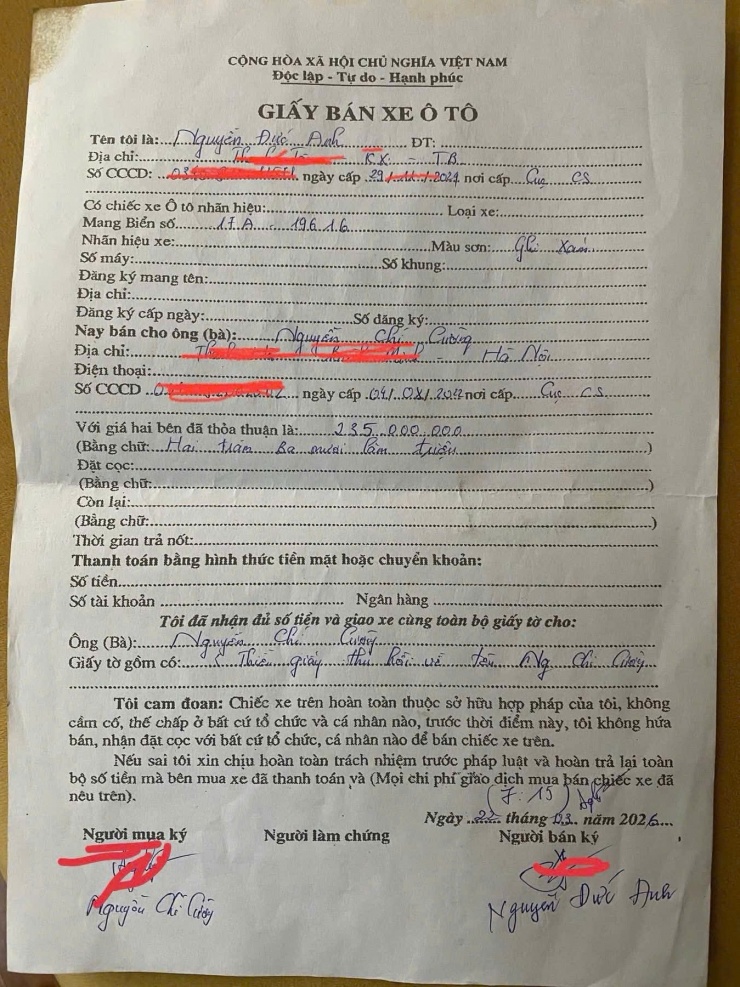 CỘNG HÒA XÃ HỘI CHỦ NGHĨA VIỆT NAM
Độc lập - Tự do - Hạnh phúc
GIẤY BÁN XE Ô TÔ
Tên tôi là: Nguyễn Đức Anh ĐT:
Địa chỉ: K.X. - T.B.
Số CCCD: ngày cấp 29/11/2021 nơi cấp Cục CS
Có chiếc xe Ô tô nhãn hiệu: Loại xe:
Mang Biển số 17A - 196.16
Nhãn hiệu xe: Màu sơn: Ghi Xám
Số máy: Số khung:
Đăng ký mang tên:
Địa chỉ:
Đăng ký cấp ngày: Số đăng ký:
Nay bán cho ông (bà): Nguyễn Chí Cường
Địa chỉ: - Hà Nội
Điện thoại:
Số CCCD ngày cấp nơi cấp Cục CS
Với giá hai bên đã thỏa thuận là: 235.000.000
(Bằng chữ: Hai trăm Ba mươi lăm triệu )
Đặt cọc:
(Bằng chữ: )
Còn lại:
(Bằng chữ: )
Thời gian trả nốt:
Thanh toán bằng hình thức tiền mặt hoặc chuyển khoản:
Số tiền
Số tài khoản Ngân hàng
Tôi đã nhận đủ số tiền và giao xe cùng toàn bộ giấy tờ cho:
Ông (Bà): Nguyễn Chí Cường
Giấy tờ gồm có: Thiếu giấy thu hồi về tên Ng Chí Cường
Tôi cam đoan: Chiếc xe trên hoàn toàn thuộc sở hữu hợp pháp của tôi, không
cầm cố, thế chấp ở bất cứ tổ chức và cá nhân nào, trước thời điểm này, tôi không hứa
bán, nhận đặt cọc với bất cứ tổ chức, cá nhân nào để bán chiếc xe trên.
Nếu sai tôi xin chịu hoàn toàn trách nhiệm trước pháp luật và hoàn trả lại toàn
bộ số tiền mà bên mua xe đã thanh toán và (Mọi chi phí giao dịch mua bán chiếc xe đã
nêu trên).
(7:15)
Ngày 22 tháng 03 năm 2026
Người mua ký Người làm chứng Người bán ký
Nguyễn Chí Cường Nguyễn Đức Anh